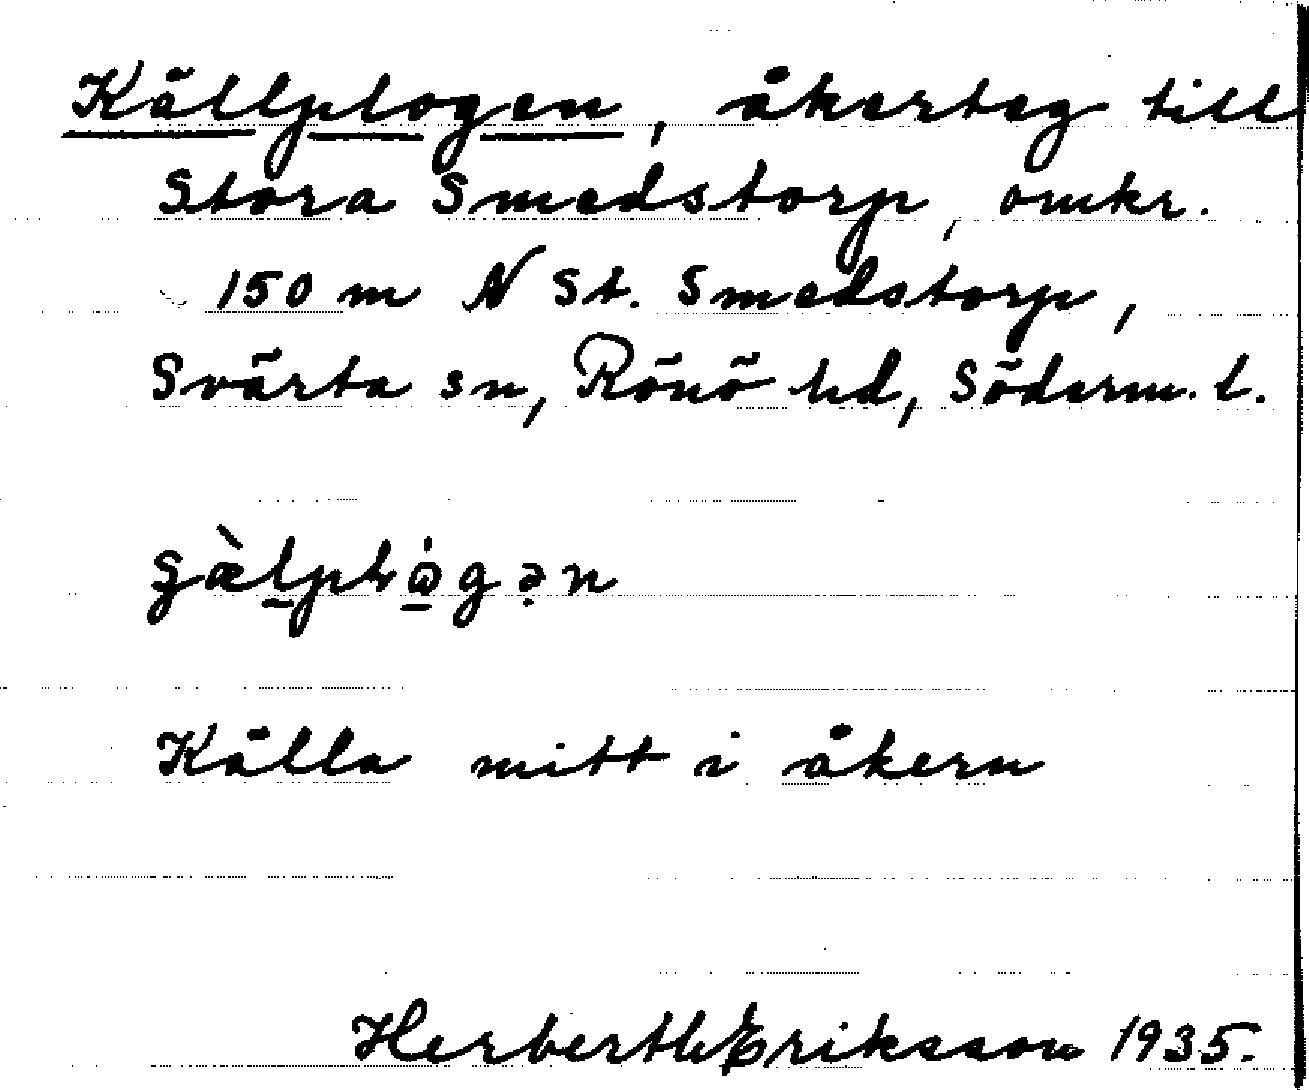 Källplogen, åkerteg till
Stora Smedstorp, omkr.
150 m N St. Smedstorp,
Svärta sn, Rönö hd, Söderm. l.
Källa mitt i åkern
Herberth Eriksson 1935.